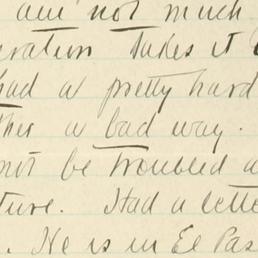 am not much
eration takes it
had a pretty hard
ther a bad way.
not be troubled a
ture. Had a lette
. He is in El Pas